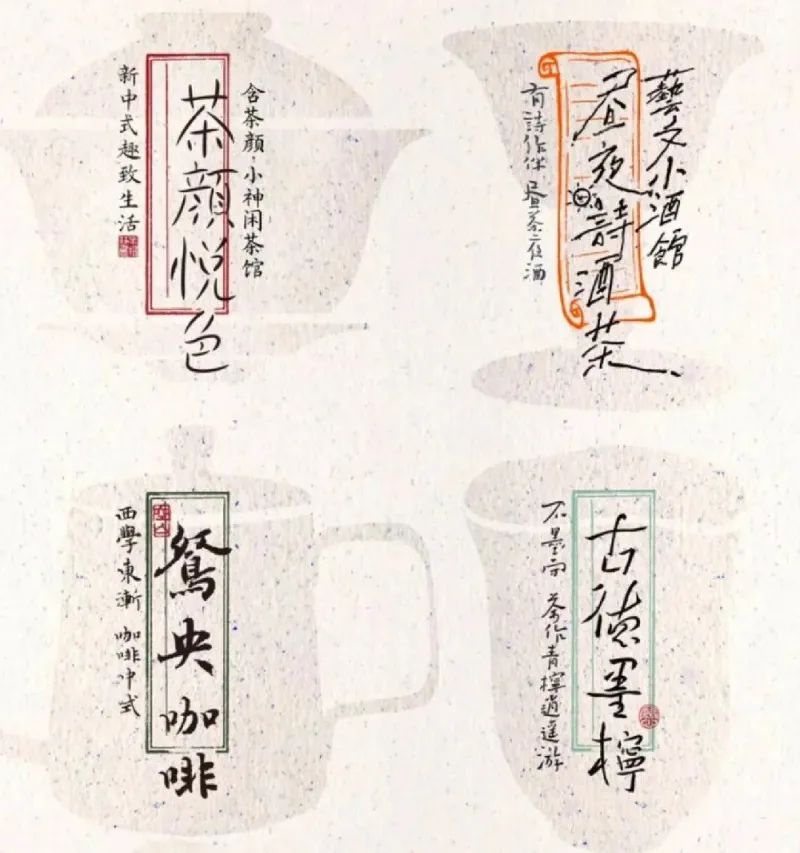 含茶颜·小神闲茶馆
茶颜悦色
新中式趣致生活
藝文小酒館
昼夜詩酒茶
有詩作伴 昼茶夜酒
鴛央咖啡
西學東漸 咖啡中式
古德墨檸
不墨 茶作青檸逍遥游